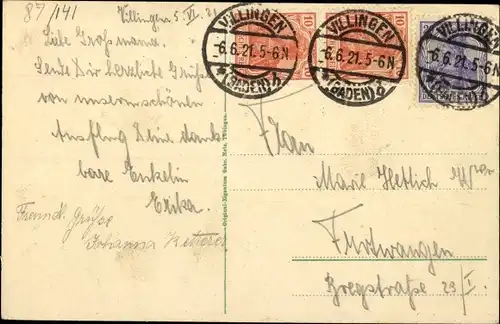 87/141
Villingen 5.VI.21
Liebe Großmama.
Sende Dir herzliche Grüße
von unserm schönen
Ausflug Deine dank-
bare Enkelin
Erika.
Freundl. Grüße
Johanna Ketterer
VILLINGEN
-6.6.21.5-6N
*(BADEN)b
VILLINGEN
-6.6.21.5-6N
*(BADEN)b
VILLINGEN
-6.6.21.5-6N
*(BADEN)b
10
10
Frau
Marie Hettich
Furtwangen
Bregstraße 29/I.